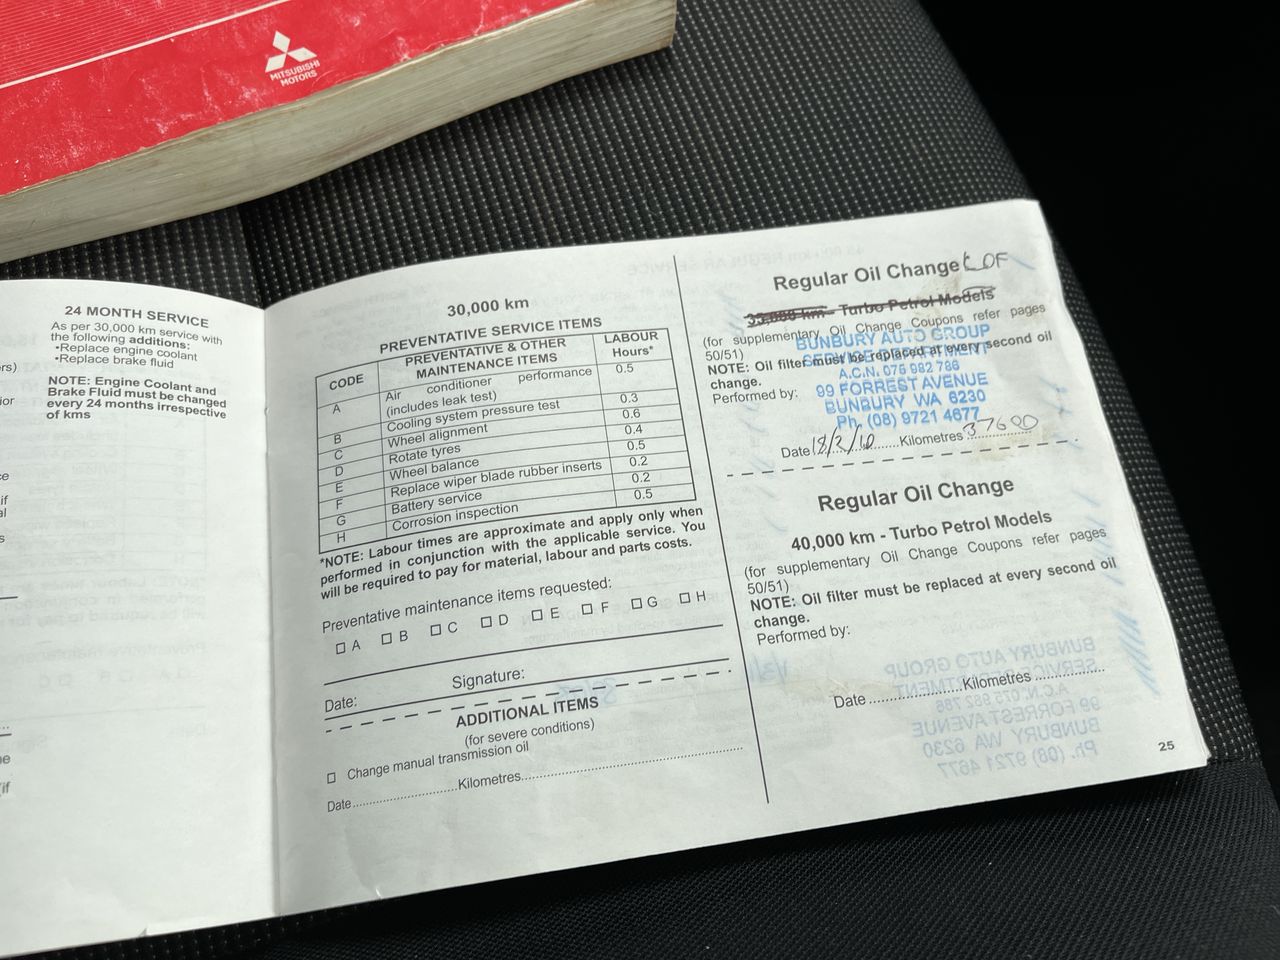 MITSUBISHI
MOTORS
24 MONTH SERVICE
As per 30,000 km service with
the following additions:
•Replace engine coolant
•Replace brake fluid
NOTE: Engine Coolant and
Brake Fluid must be changed
every 24 months irrespective
of kms
30,000 km
PREVENTATIVE SERVICE ITEMS
CODE PREVENTATIVE & OTHER MAINTENANCE ITEMS LABOUR Hours*
A Air conditioner performance (includes leak test) 0.5
B Cooling system pressure test 0.3
C Wheel alignment 0.6
D Rotate tyres 0.4
E Wheel balance 0.5
F Replace wiper blade rubber inserts 0.2
G Battery service 0.2
H Corrosion inspection 0.5
*NOTE: Labour times are approximate and apply only when
performed in conjunction with the applicable service. You
will be required to pay for material, labour and parts costs.
Preventative maintenance items requested:
A B C D E F G H
Signature:
Date:
ADDITIONAL ITEMS
(for severe conditions)
Change manual transmission oil
Date....................Kilometres..........................................
Regular Oil Change
35,000 km - Turbo Petrol Models
(for supplementary Oil Change Coupons refer pages
50/51)
NOTE: Oil filter must be replaced at every second oil
change.
Performed by:
BUNBURY AUTO GROUP
SERVICE DEPARTMENT
A.C.N. 075 982 786
99 FORREST AVENUE
BUNBURY WA 6230
Ph. (08) 9721 4677
Date 18/2/10 Kilometres 37600
Regular Oil Change
40,000 km - Turbo Petrol Models
(for supplementary Oil Change Coupons refer pages
50/51)
NOTE: Oil filter must be replaced at every second oil
change.
Performed by:
Date ....................Kilometres ...............
25